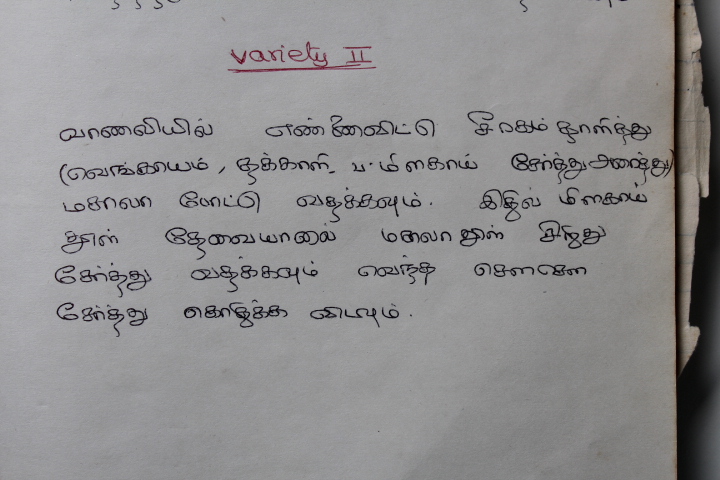 Variety II
வாணலியில் எண்ணைவிட்டு சீரகம் தாளித்து
(வெங்காயம், தக்காளி, ப.மிளகாய் சேர்த்து அரைத்து)
மசாலா போட்டு வதக்கவும். இதில் மிளகாய்
தூள் தேவையானால் மசாலா தூள் சிறிது
சேர்த்து வதக்கவும் வெந்த சௌசௌ
சேர்த்து கொதிக்க விடவும்.